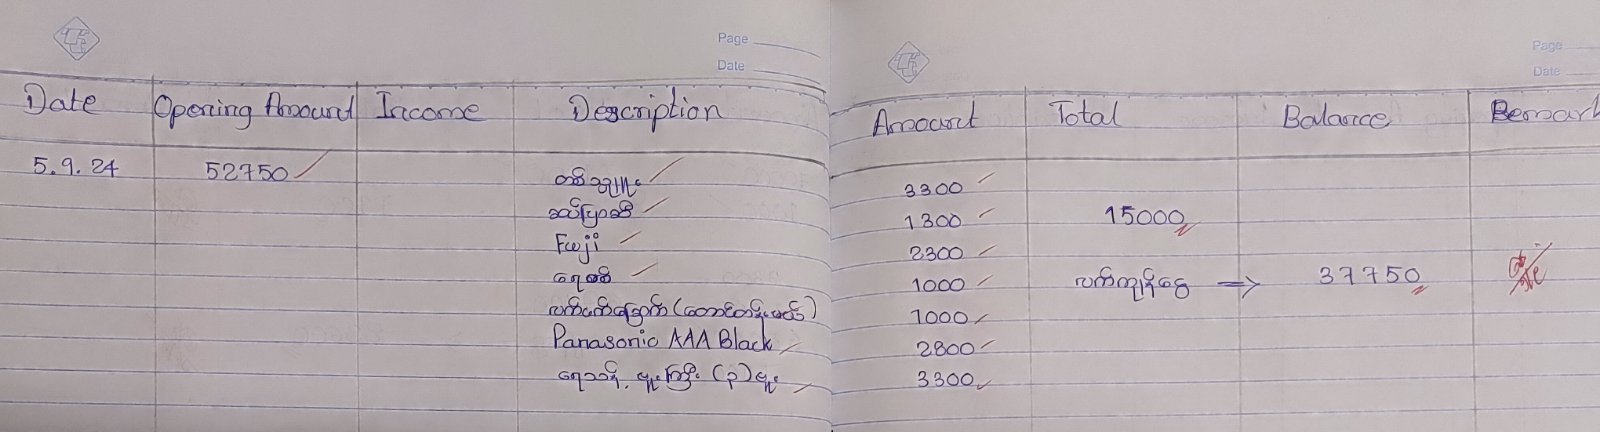 Page
Date
Page
Date
Date Opening Amount Income Description Amount Total Balance Remark
5.9.24 52750 တစ်ရှူး 3300
1300 15000
Fuji 2300
ရေ 1000 လက်ကျန်ငွေ → 37750
1000
Panasonic AAA Black 2800
ရေသန့် ဗူးကြီး (၃) ဗူး 3300